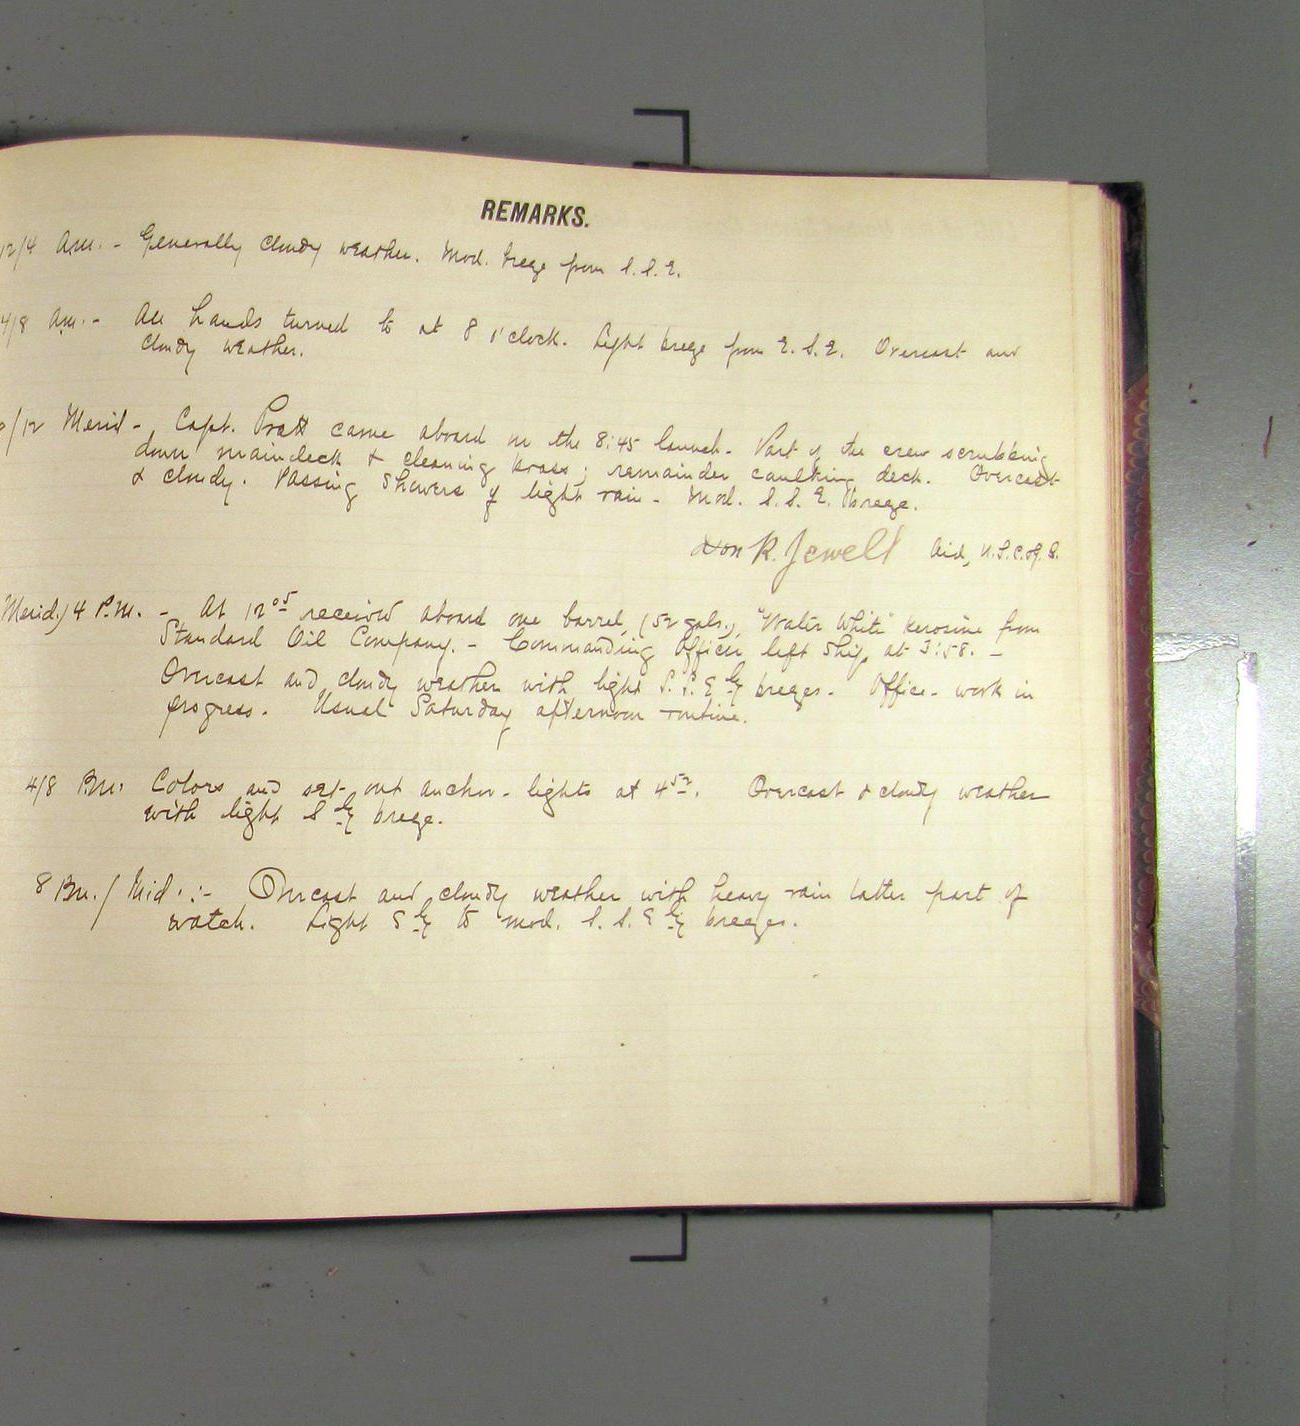 REMARKS.
12/4 Am. - Generally cloudy weather. Mod. breeze from S.S.E.
4/8 Am. - All hands turned to at 8 o'clock. Light breeze from E.S.E. Overcast and
cloudy weather.
/12 Merid - Capt. Pratt came aboard in the 8:45 launch. Part of the crew scrubbing
down maindeck & cleaning brass; remainder caulking deck. Overcast
& cloudy. Passing showers of light rain - Mod. S.S.E. breeze.
Don R. Jewell Aid, U.S.C.&G.S.
Merid./4 P.M. - At 12⁰⁵ received aboard one barrel, (52 gals.), "Water White" kerosine from
Standard Oil Company. - Commanding Officer left ship at 3:58. -
Overcast and cloudy weather with light S.S.E'ly breezes. Office-work in
progress. Usual Saturday afternoon routine.
4/8 Pm: Colors and set out anchor-lights at 4⁵². Overcast & cloudy weather
with light S'ly breeze.
8 Pm./Mid.:- Overcast and cloudy weather with heavy rain latter part of
watch. Light S'ly to mod. S.S.E'ly breezes.